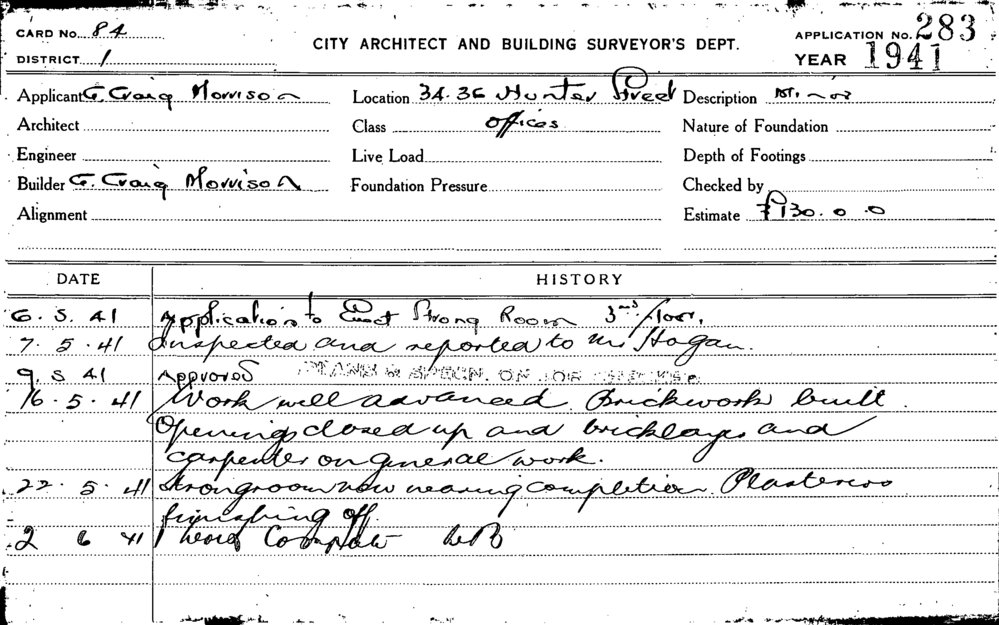 CARD No. 84
DISTRICT 1
CITY ARCHITECT AND BUILDING SURVEYOR'S DEPT.
APPLICATION No. 283
YEAR 1941
Applicant G. Craig Morrison
Location 34.36 Hunter Street
Description Minor
Architect
Class offices
Nature of Foundation
Engineer
Live Load
Depth of Footings
Builder G. Craig Morrison
Foundation Pressure
Checked by
Alignment
Estimate £130.0.0
DATE HISTORY
6.5.41 Application to Erect Strong Room 3rd floor.
7.5.41 Inspected and reported to Mr Hogan.
9.5.41 Approved PLANS & SPECN. ON JOB
16.5.41 Work well advanced. Brickwork built.
Openings closed up and bricklayer and
carpenter on general work.
22.5.41 Strongroom now nearing completion. Plasterers
finishing off.
2 6 41 work Complete